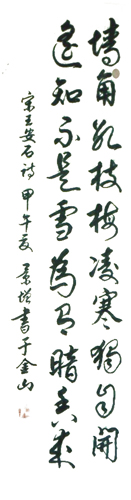 墙角数枝梅凌寒独自开
遥知不是雪为有暗香来
宋王安石诗甲午夏景增书于金山